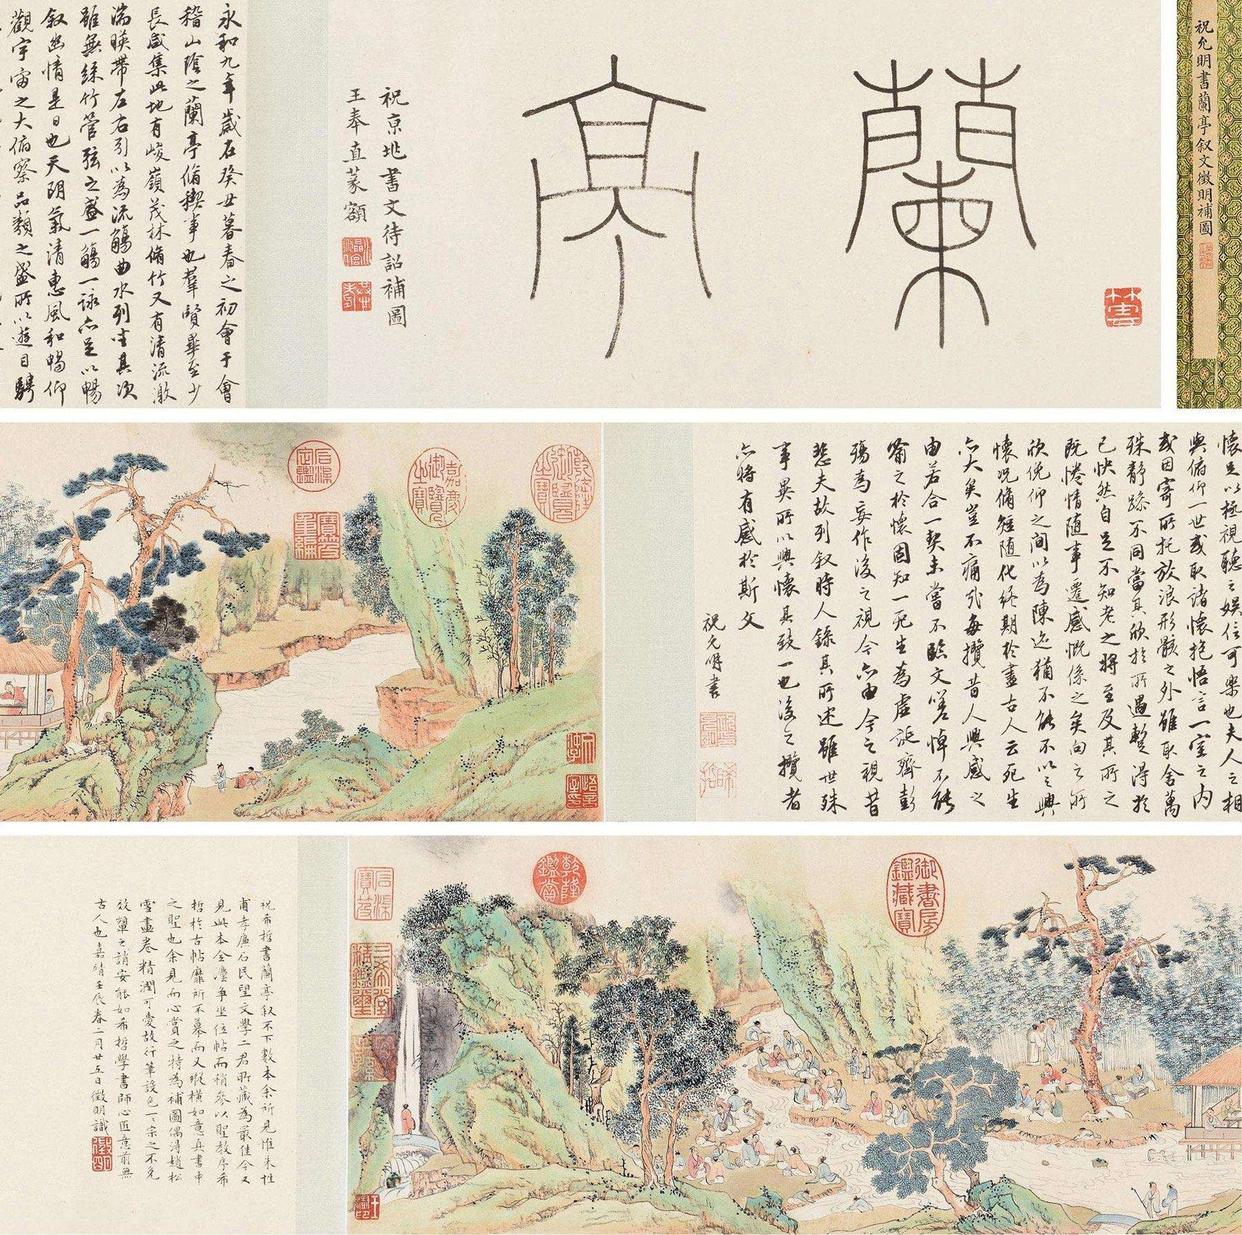 祝允明書蘭亭叙文徵明補圖
蘭亭
祝京兆書文待詔補圖
王奉直篆額
永和九年歲在癸丑暮春之初會于會
稽山陰之蘭亭脩稧事也羣賢畢至少
長咸集此地有峻嶺茂林脩竹又有清流激
湍暎帶左右引以為流觴曲水列坐其次
雖無絲竹管弦之盛一觴一詠亦足以暢
叙幽情是日也天朗氣清惠風和暢仰
觀宇宙之大俯察品類之盛所以遊目騁
懷足以極視聽之娛信可樂也夫人之相
與俯仰一世或取諸懷抱悟言一室之内
或因寄所托放浪形骸之外雖取舍萬
殊静躁不同當其欣於所遇暫得於
己快然自足不知老之將至及其所之
既惓情隨事遷感慨係之矣向之所
欣俛仰之間以為陳迹猶不能不以之興
懷況脩短隨化終期於盡古人云死生
亦大矣豈不痛哉每攬昔人興感之
由若合一契未嘗不臨文嗟悼不能
喻之於懷固知一死生為虛誕齊彭
殤為妄作後之視今亦由今之視昔
悲夫故列叙時人錄其所述雖世殊
事異所以興懷其致一也後之攬者
亦將有感於斯文
祝允明書
石渠定鑑
寶笈重編
嘉慶御覽之寶
御書房鑑藏寶
乾隆鑑賞
石渠寶笈
三希堂精鑑璽
祝希哲書蘭亭叙不下數本余所見惟朱性
甫李廬石民望文學二君所藏為最佳今又
見此本全爭坐位帖而稍參以聖教序希
哲於古帖靡所不摹而又縱橫如意真書中
之聖也余見而心賞之特為補圖偶得趙松
雪畫卷精潤可愛故行筆設色一宗之不免
效顰之誚安能如希哲學書師心匠意前無
古人也嘉靖壬辰春二月廿五日徵明識